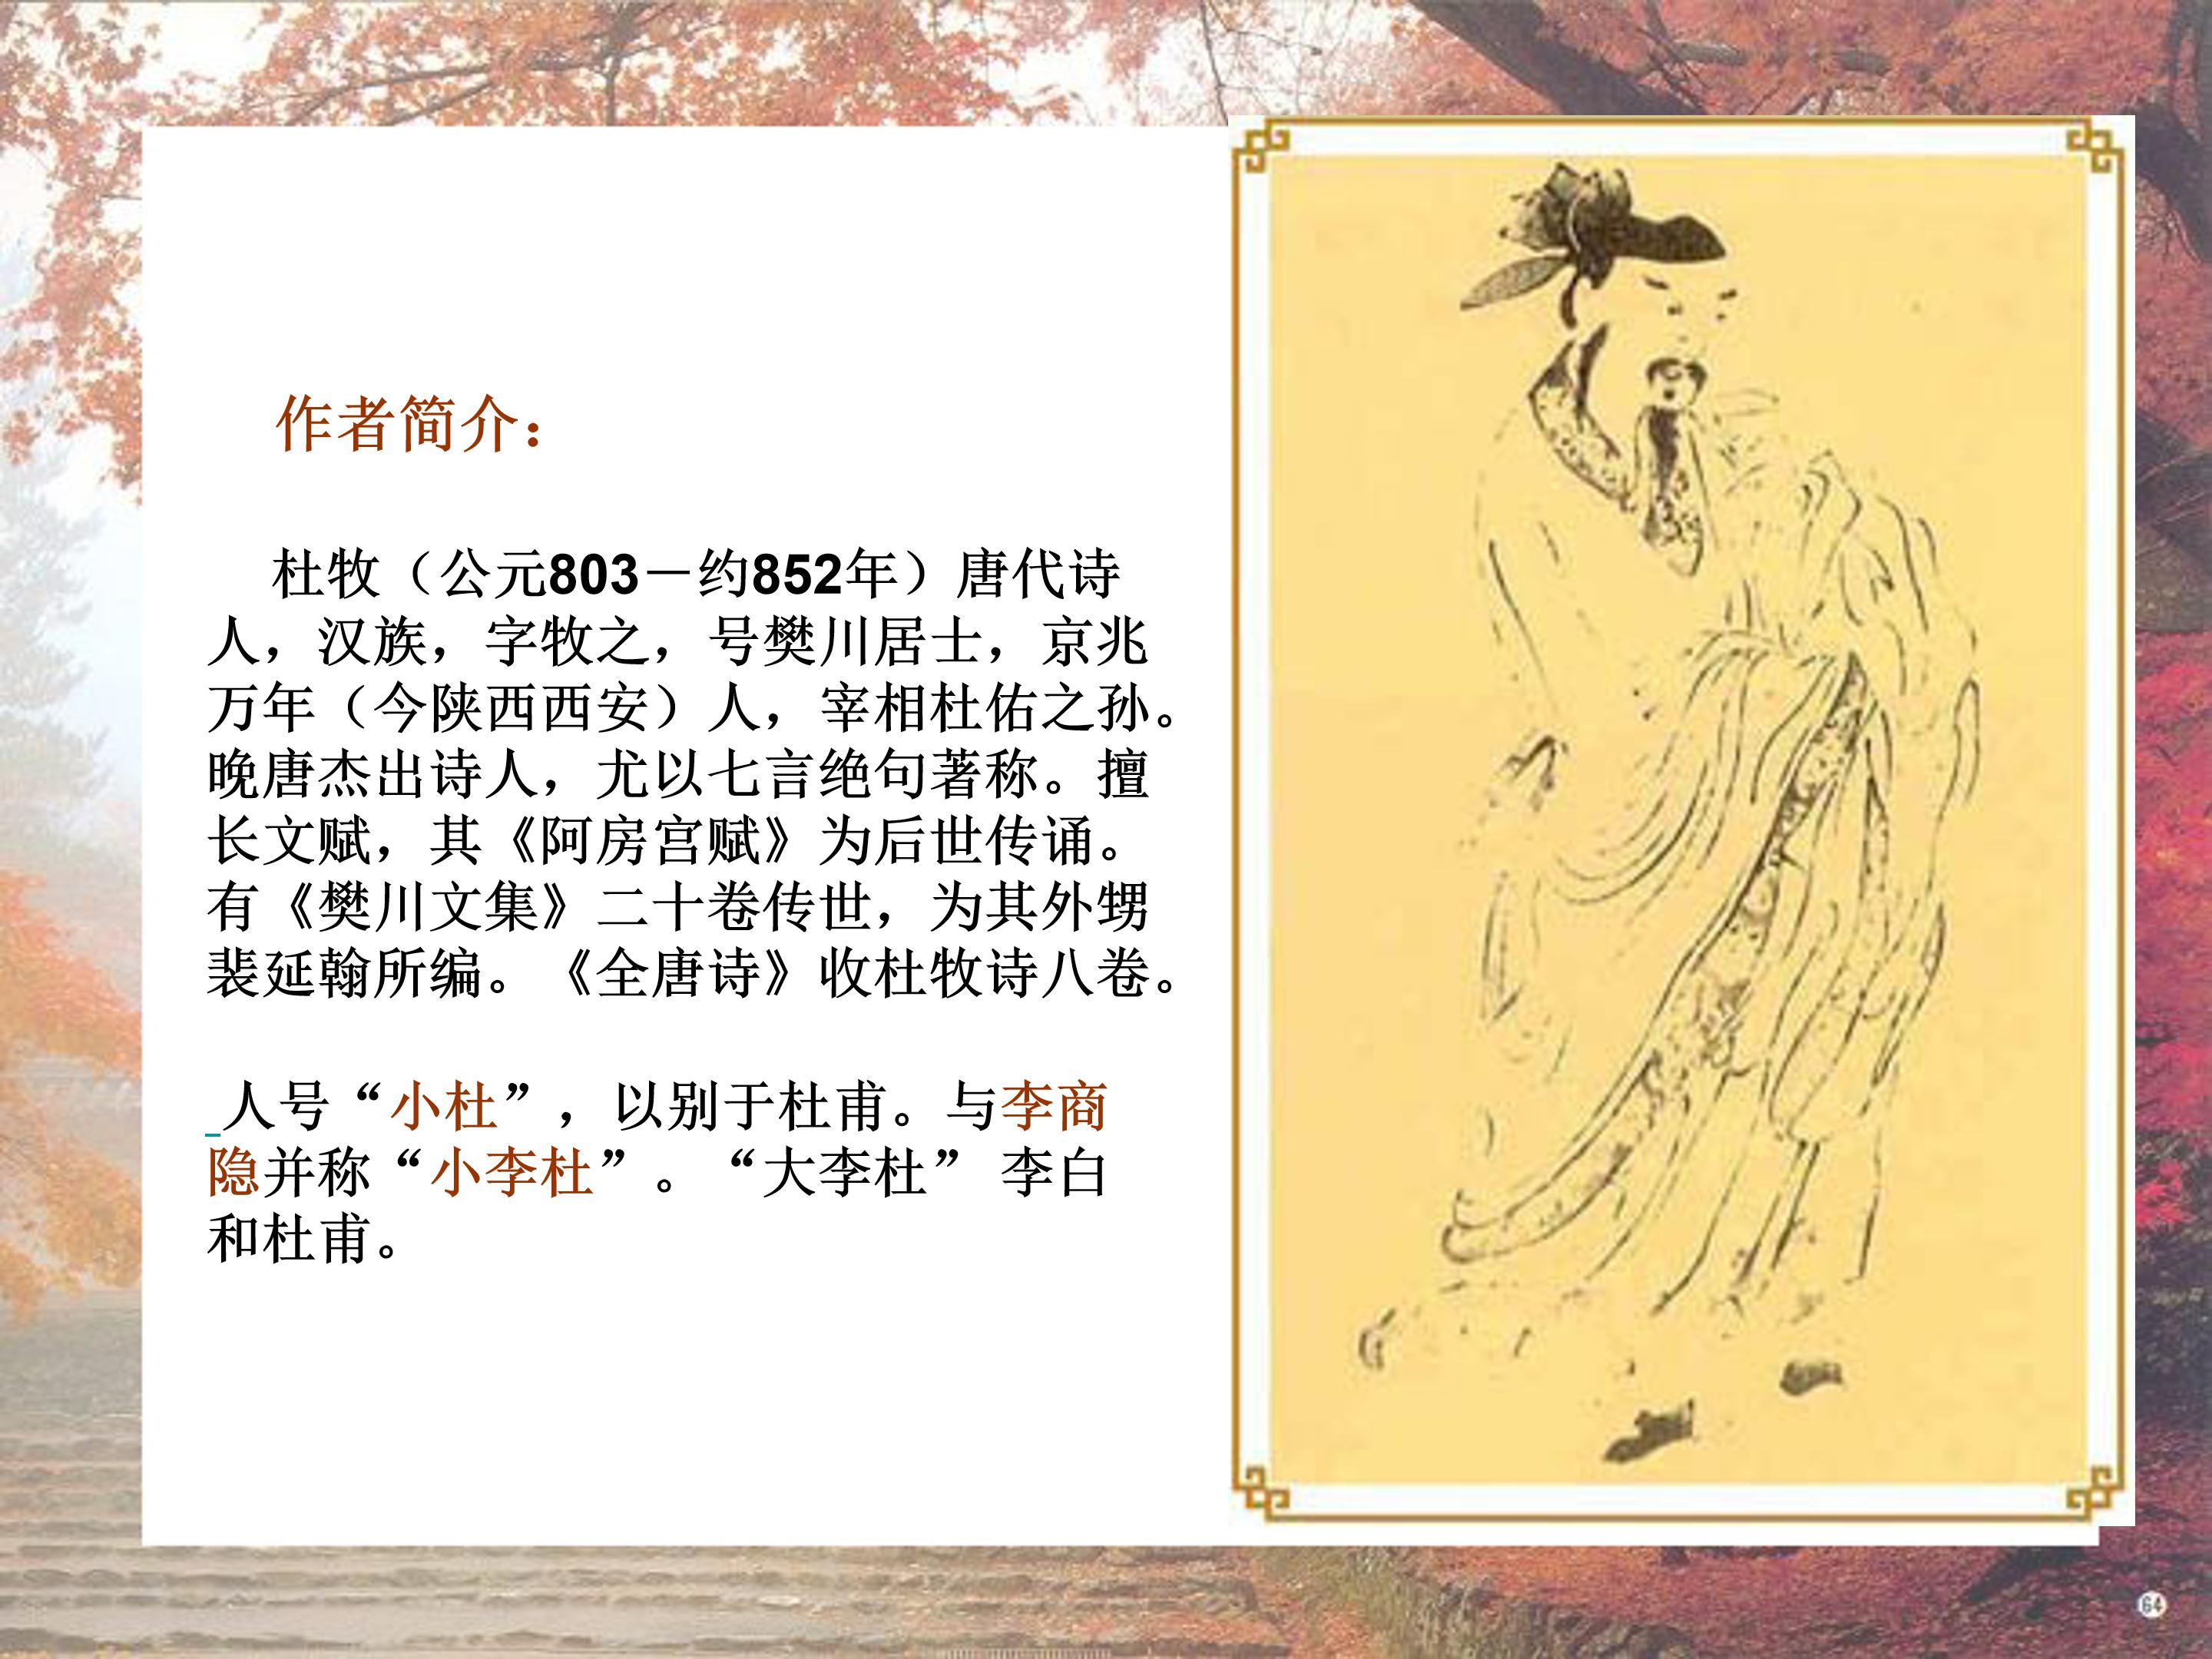 作者简介：
杜牧（公元803－约852年）唐代诗
人，汉族，字牧之，号樊川居士，京兆
万年（今陕西西安）人，宰相杜佑之孙。
晚唐杰出诗人，尤以七言绝句著称。擅
长文赋，其《阿房宫赋》为后世传诵。
有《樊川文集》二十卷传世，为其外甥
裴延翰所编。《全唐诗》收杜牧诗八卷。
人号“小杜”，以别于杜甫。与李商
隐并称“小李杜”。“大李杜” 李白
和杜甫。
64